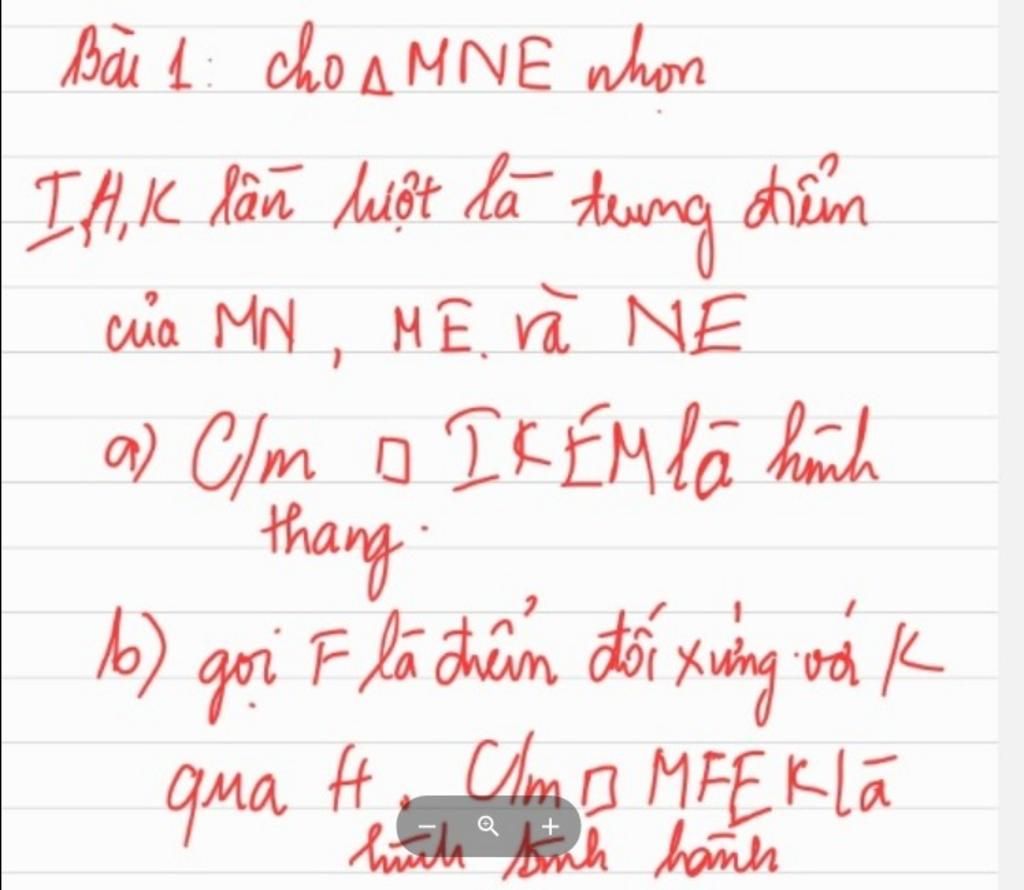 Bài 1: cho Δ MNE nhọn
I, H, K lần lượt là trung điểm
của MN, ME và NE
a) C/m □ IKEM là hình
thang.
b) gọi F là điểm đối xứng với K
qua H. C/m □ MFEK là
hình bình hành